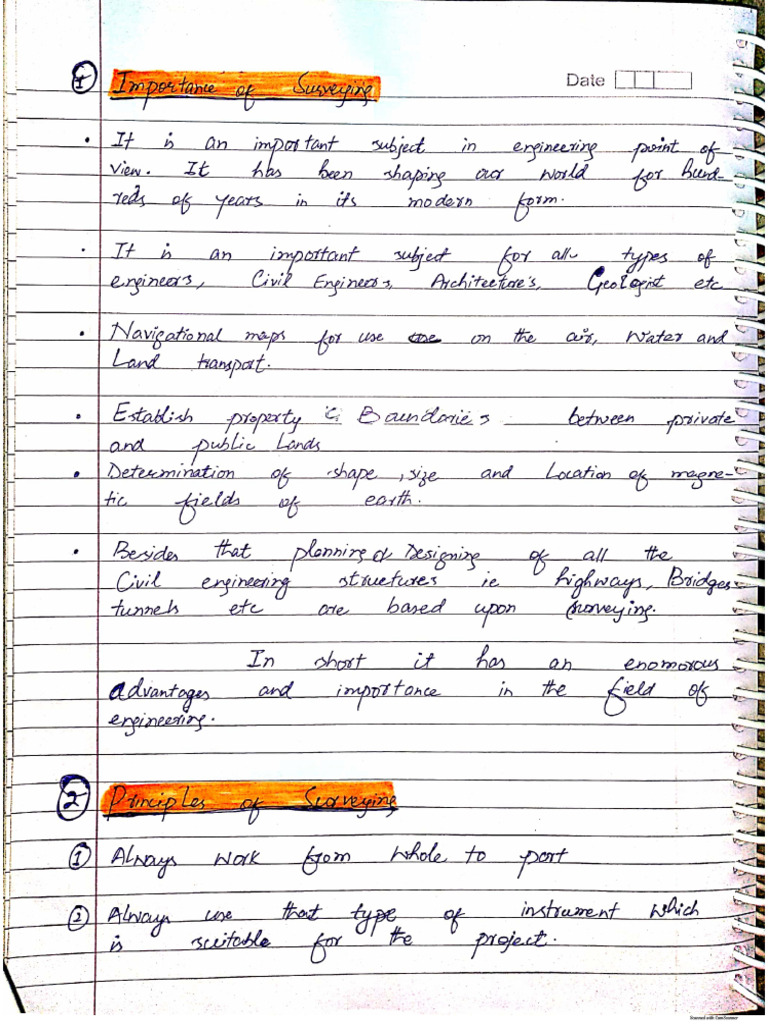 ① Importance of Surveying
Date
• It is an important subject in engineering point of
view. It has been shaping our world for hund-
reds of years in its modern form.
• It is an important subject for all types of
engineers, Civil Engineers, Architecture's, Geologist etc
• Navigational maps for use on the air, water and
Land transport.
• Establish property Boundaries between private
and public Lands
• Determination of shape, size and Location of magne-
tic fields of earth.
• Besides that planning & Designing of all the
Civil engineering structures ie highways, Bridges
tunnels etc are based upon surveying.
In short it has an enomorous
advantages and importance in the field of
engineering.
② Principles of Surveying
① Always work from whole to part
② Always use that type of instrument which
is suitable for the project.
Scanned with CamScanner